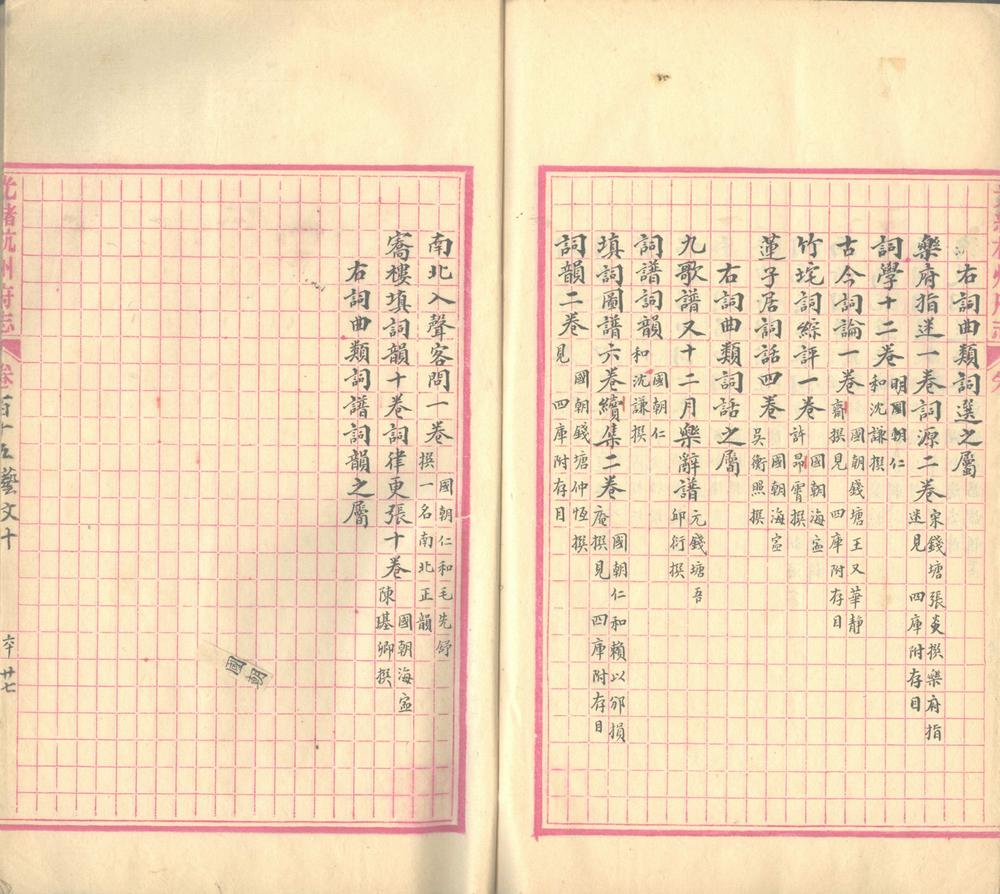 右詞曲類詞選之屬
樂府指迷一卷詞源二卷宋錢塘張炎撰樂府指迷見四庫附存目
詞學十二卷明國朝仁和沈謙撰
古今詞論一卷國朝錢塘王又華靜齋撰見四庫附存目
竹垞詞綜評一卷國朝海寧許昂霄撰
蓮子居詞話四卷國朝海寧吳衡照撰
右詞曲類詞話之屬
九歌譜又十二月樂辭譜元錢塘吾邱衍撰
詞譜詞韻國朝仁和沈謙撰
填詞圖譜六卷續集二卷國朝仁和賴以邠損庵撰見四庫附存目
詞韻二卷國朝錢塘仲恆撰見四庫附存目
南北入聲客問一卷國朝仁和毛先舒撰一名南北正韻
騫樓填詞韻十卷詞律更張十卷國朝海寧陳堪卿撰
右詞曲類詞譜詞韻之屬
國朝
光緒杭州府志 卷百十五藝文十
六 廿七